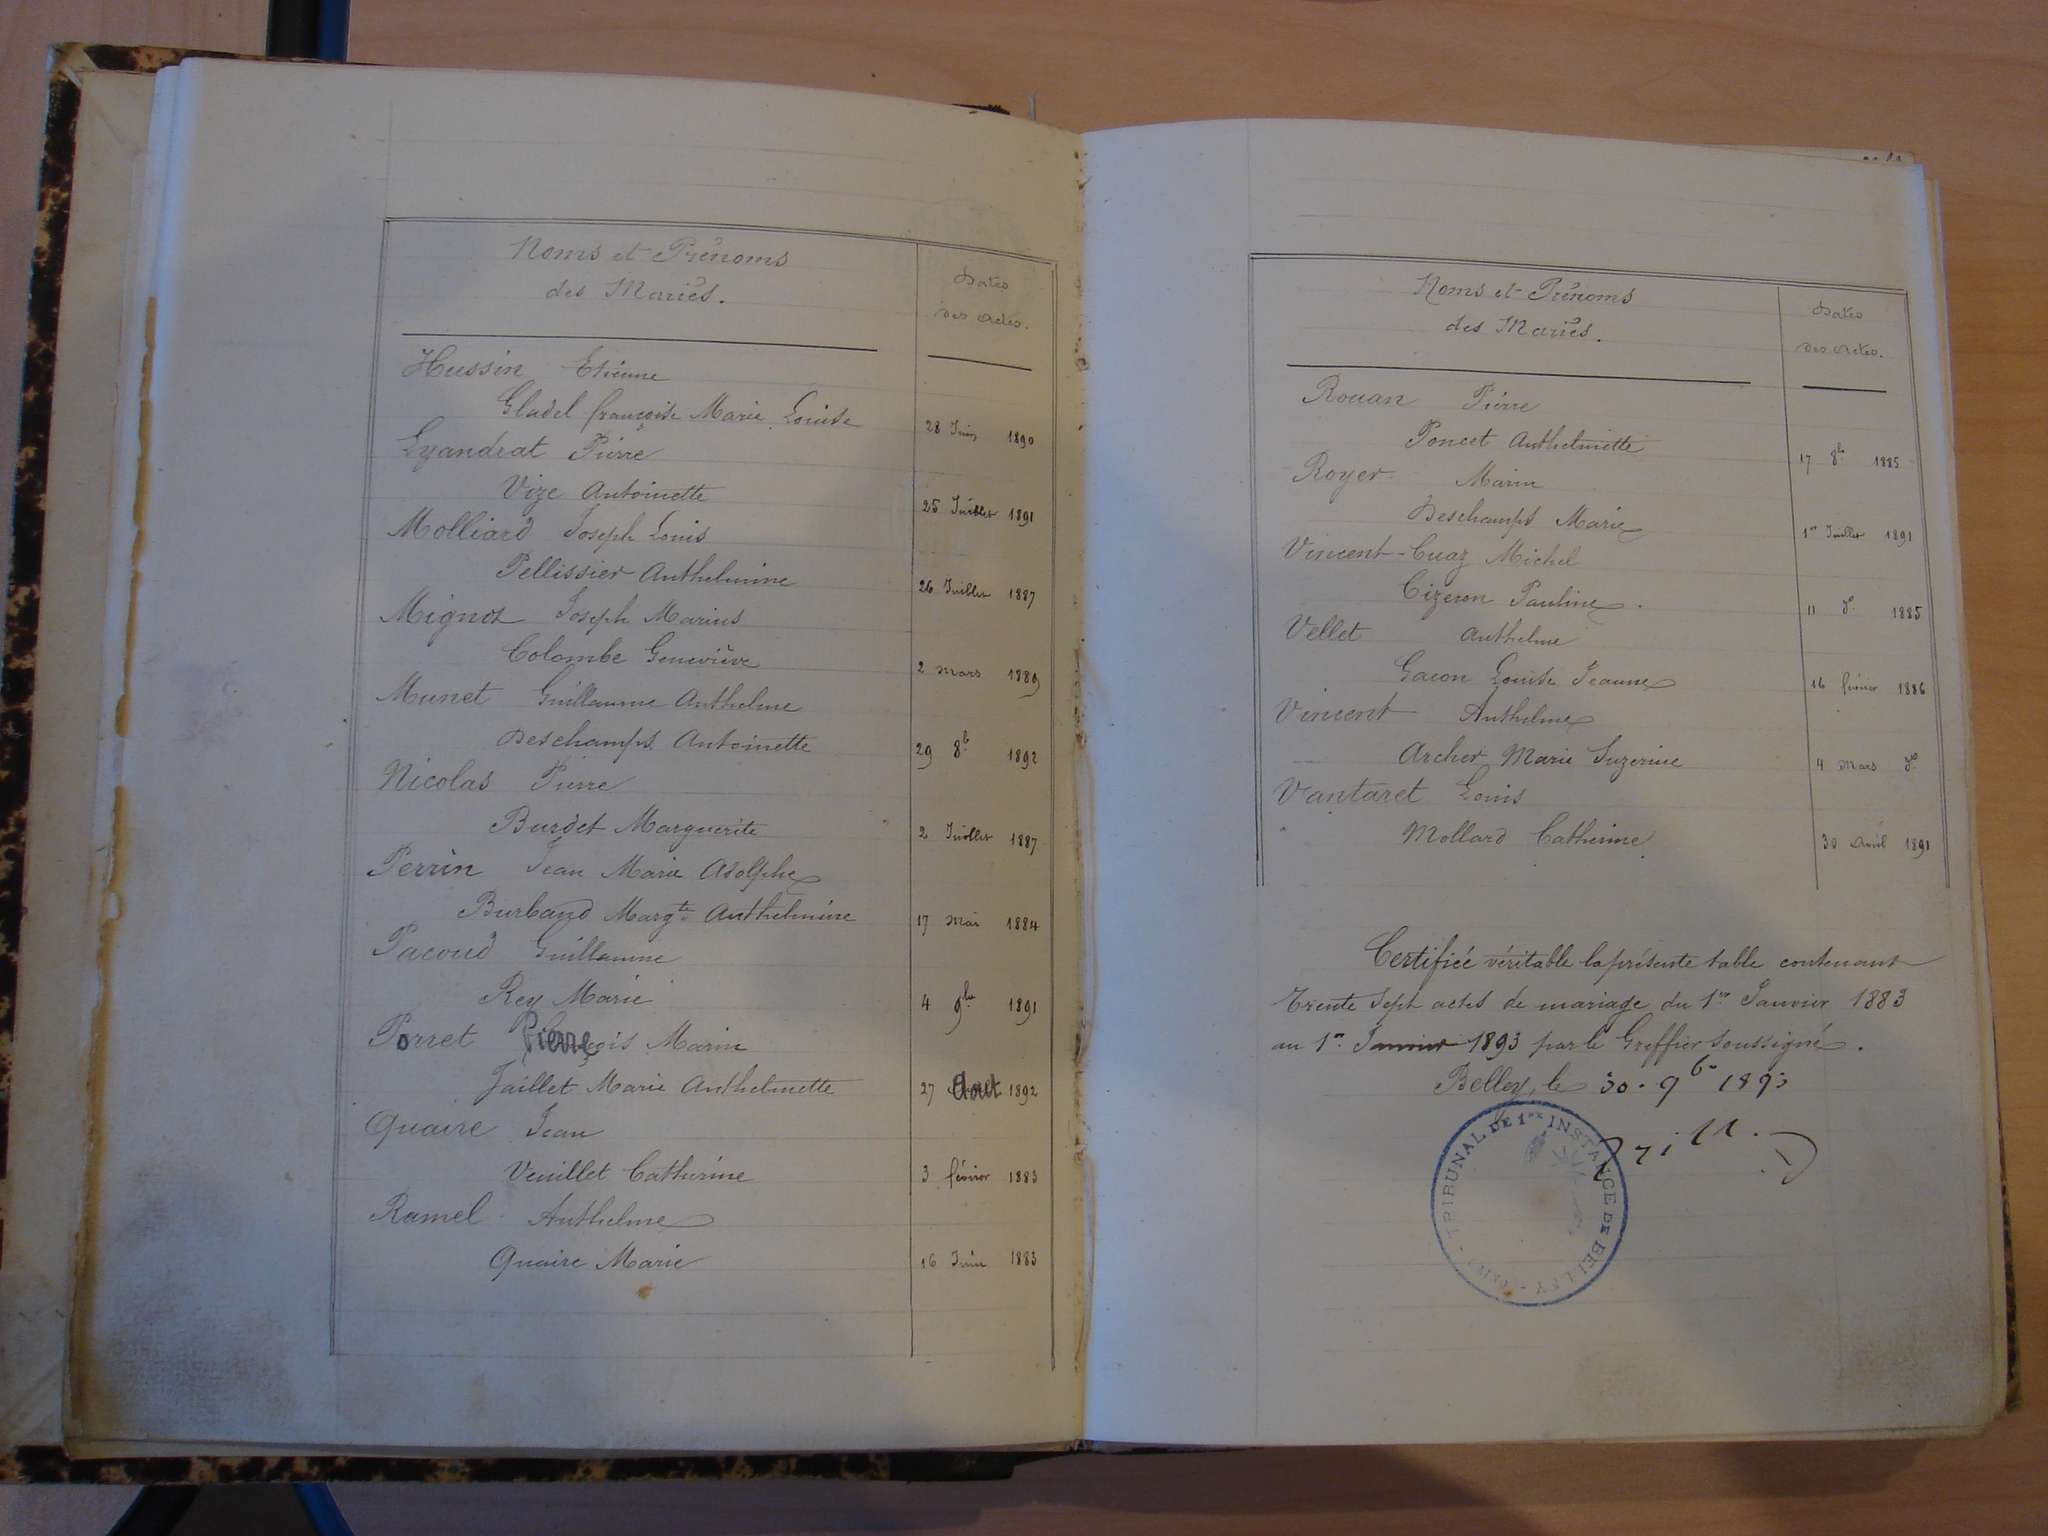 Noms et Prénoms
des Mariés.
Dates
des Actes.
Hussin Etienne
Gladel françoise Marie Louise 28 Juin 1890
Lyandrat Pierre
Vize Antoinette 25 Juillet 1891
Molliard Joseph Louis
Pellissier Anthelmine 26 Juillet 1887
Mignot Joseph Marius
Colombe Geneviève 2 Mars 1889
Munet Guillaume Anthelme
Deschamps Antoinette 29 8b 1892
Nicolas Pierre
Burdet Marguerite 2 Juillet 1887
Perrin Jean Marie Adolphe
Burbaud Margte Anthelmine 17 Mai 1884
Pacoud Guillaume
Rey Marie 4 9bre 1891
Porret Pierre Marin
Jaillet Marie Anthelmette 27 Aout 1892
Quaire Jean
Veuillet Catherine 3 février 1883
Ramel Anthelme
Quaire Marie 16 Juin 1883
Noms et Prénoms
des Mariés.
Dates
des Actes.
Rouan Pierre
Poncet Anthelmette 17 8b 1885
Royer Marin
Deschamps Marie 1er Juillet 1891
Vincent-Cuaz Michel
Cizeron Pauline. 11 do 1885
Vellet Anthelme
Gacon Louise Jeanne 16 février 1886
Vincent Anthelme
Archer Marie Suzerine 4 Mars do
Vantaret Louis
Mollard Catherine 30 Avril 1891
Certifiée véritable la présente table contenant
Trente Sept actes de mariage du 1er Janvier 1883
au 1er Janvier 1893 par le Greffier soussigné.
Belley, le 30. 9b 1893
TRIBUNAL DE 1ERE INSTANCE DE BELLEY